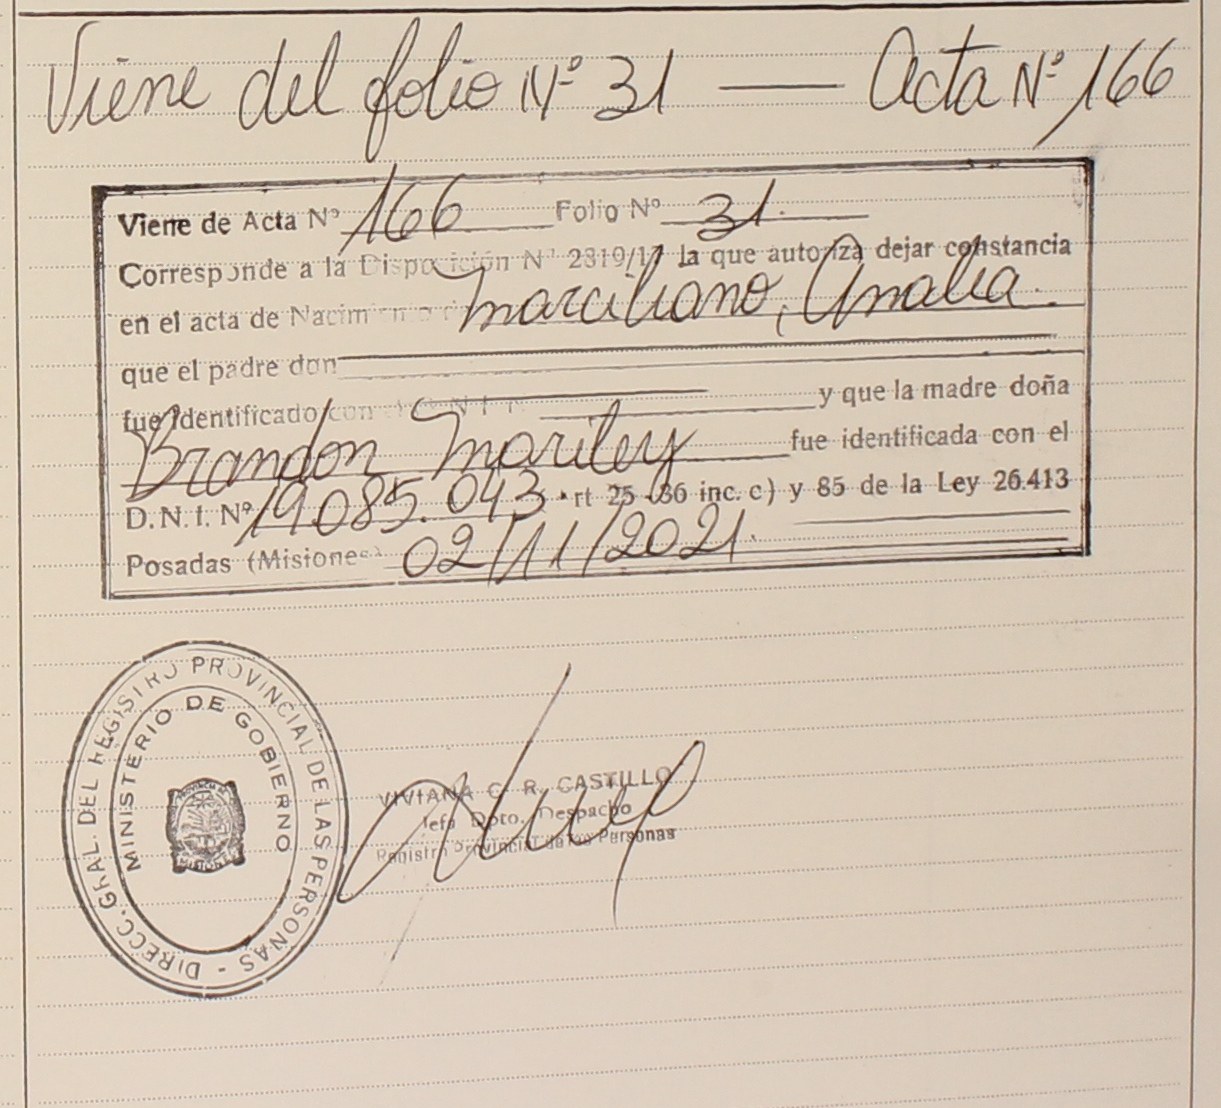 Viene del folio Nº 31 — Acta Nº 166
Viene de Acta Nº 166 Folio Nº 31.
Corresponde a la Disposición Nº 2319/17 la que autoriza dejar constancia
en el acta de Nacimiento de Marciliano, Analia.
que el padre don
fue identificado con el D.N.I. Nº y que la madre doña
Brandon Mariley fue identificada con el
D.N.I. Nº 19.085.043 art 25 36 inc. c) y 85 de la Ley 26.413
Posadas (Misiones) 02/11/2021.
DIRECC. GRAL. DEL REGISTRO PROVINCIAL DE LAS PERSONAS -
MINISTERIO DE GOBIERNO
VIVIANA C. R. CASTILLO
Jefa Dpto. Despacho
Registro Provincial de las Personas